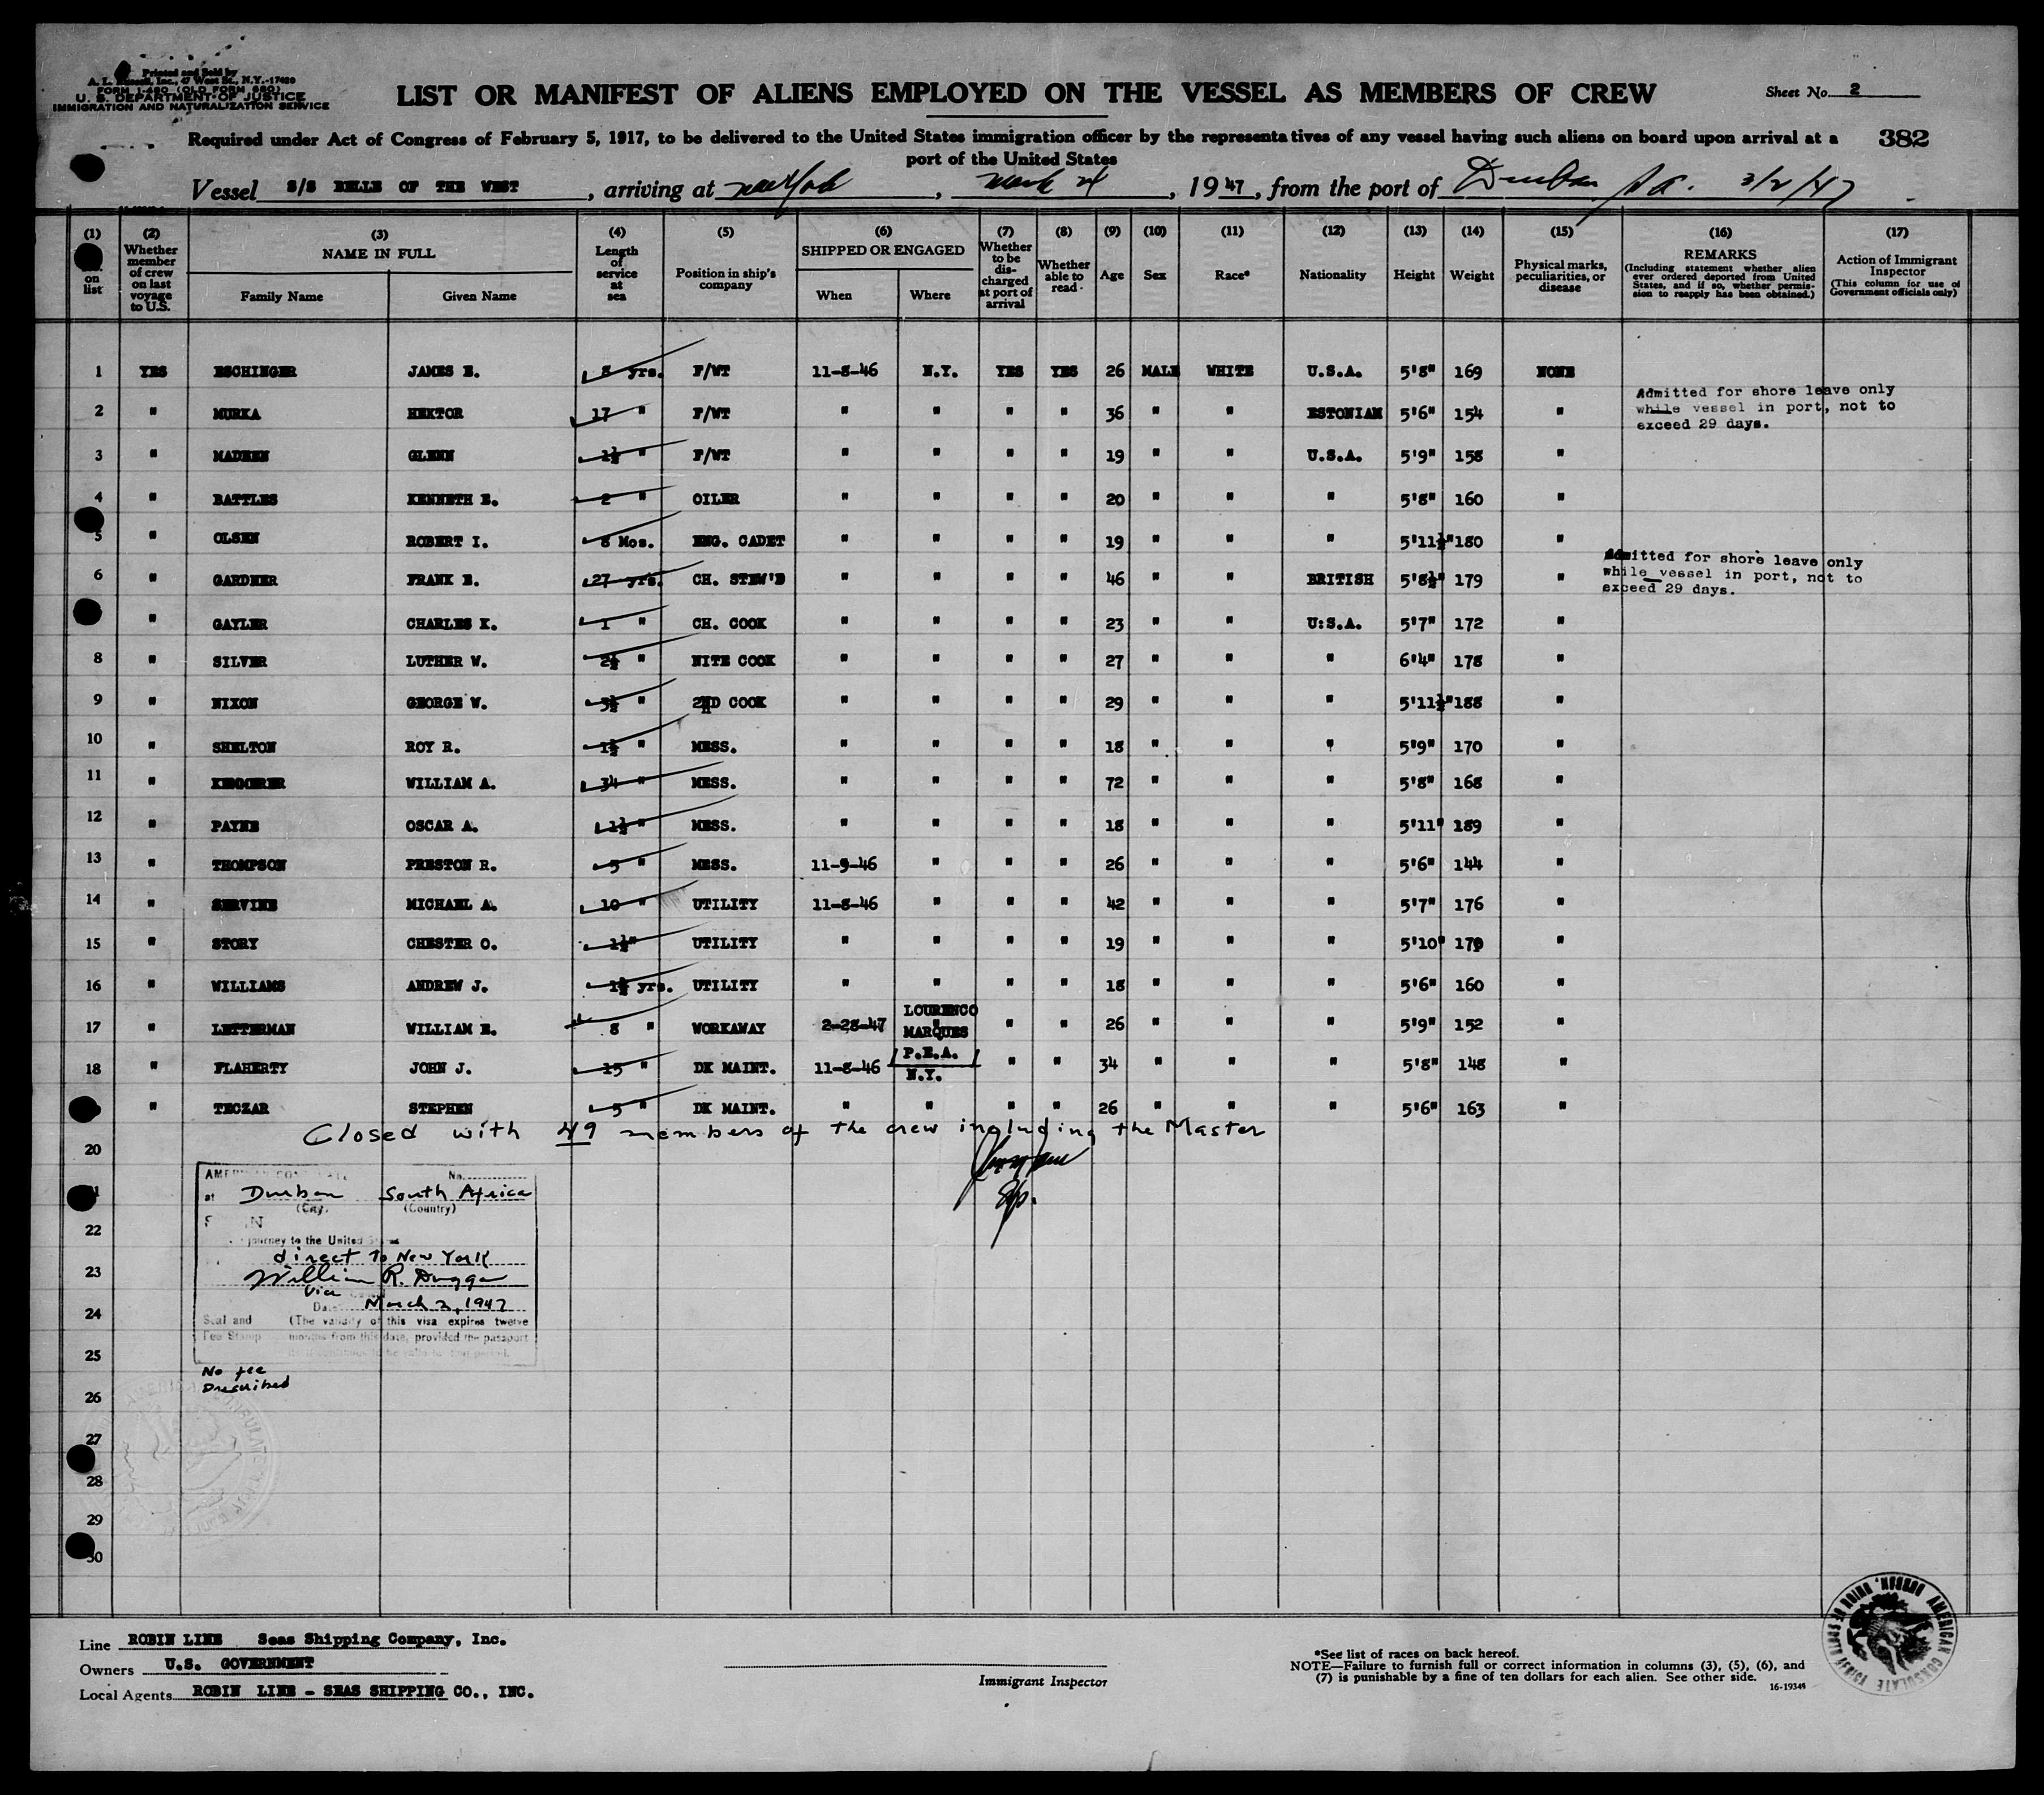 Printed and Sold by
A. L. Russell, Inc., 47 West St., N.Y.-17420
FORM I-480 (OLD FORM 680)
U. S. DEPARTMENT OF JUSTICE
IMMIGRATION AND NATURALIZATION SERVICE
LIST OR MANIFEST OF ALIENS EMPLOYED ON THE VESSEL AS MEMBERS OF CREW
Sheet No. 2
Required under Act of Congress of February 5, 1917, to be delivered to the United States immigration officer by the representatives of any vessel having such aliens on board upon arrival at a
port of the United States
382
Vessel S/S BELLE OF THE WEST, arriving at New York, March 24, 1947, from the port of Durban SA. 3/2/47
(1) on list
(2) Whether member of crew on last voyage to U.S.
(3) NAME IN FULL Family Name Given Name
(4) Length of service at sea
(5) Position in ship's company
(6) SHIPPED OR ENGAGED When Where
(7) Whether to be discharged at port of arrival
(8) Whether able to read
(9) Age
(10) Sex
(11) Race*
(12) Nationality
(13) Height
(14) Weight
(15) Physical marks, peculiarities, or disease
(16) REMARKS (Including statement whether alien ever ordered deported from United States, and if so, whether permission to reapply has been obtained.)
(17) Action of Immigrant Inspector (This column for use of Government officials only)
1 YES ESCHINGER JAMES E. 8 yrs. F/WT 11-8-46 N.Y. YES YES 26 MALE WHITE U.S.A. 5'8" 169 NONE
2 " MURKA HEKTOR 17 " F/WT " " " " 36 " " ESTONIAN 5'6" 154 " Admitted for shore leave only while vessel in port, not to exceed 29 days.
3 " MADEEN GLENN 1½ " F/WT " " " " 19 " " U.S.A. 5'9" 158 "
4 " BATTLES KENNETH E. 2 " OILER " " " " 20 " " " 5'8" 160 "
5 " OLSEN ROBERT I. 8 Mos. ENG. CADET " " " " 19 " " " 5'11½" 180 "
6 " GARDNER FRANK E. 27 yrs. CH. STEW'D " " " " 46 " " BRITISH 5'8½" 179 " Admitted for shore leave only while vessel in port, not to exceed 29 days.
" GAYLER CHARLES K. 1 " CH. COOK " " " " 23 " " U.S.A. 5'7" 172 "
8 " SILVER LUTHER W. 2½ " NITE COOK " " " " 27 " " " 6'4" 178 "
9 " NIXON GEORGE W. 3½ " 2ND COOK " " " " 29 " " " 5'11½" 188 "
10 " SHELTON ROY R. 1½ " MESS. " " " " 18 " " " 5'9" 170 "
11 " WILLIAM A. 34 " MESS. " " " " 72 " " " 5'8" 168 "
12 " PAYNE OSCAR A. 1½ " MESS. " " " " 18 " " " 5'11" 189 "
13 " THOMPSON PRESTON R. 5 " MESS. 11-9-46 " " " 26 " " " 5'6" 144 "
14 " SERVINE MICHAEL A. 10 " UTILITY 11-8-46 " " " 42 " " " 5'7" 176 "
15 " STORY CHESTER O. 1½ " UTILITY " " " " 19 " " " 5'10" 179 "
16 " WILLIAMS ANDREW J. 1½ yrs. UTILITY " " " " 18 " " " 5'6" 160 "
17 " LETTERMAN WILLIAM E. 8 " WORKAWAY 2-28-47 LOURENCO MARQUES P.E.A. " " 26 " " " 5'9" 152 "
18 " FLAHERTY JOHN J. 15 " DK MAINT. 11-8-46 N.Y. " " 34 " " " 5'8" 148 "
" TECZAR STEPHEN 5 " DK MAINT. " " " " 26 " " " 5'6" 163 "
Closed with 49 members of the crew including the Master
20
22
23
24
25
26
27
28
29
30
No.
at Durban South Africa
(City) (Country)
journey to the United States
direct to New York
William R. Duggan
Vice
Date March 2, 1947
Seal and (The validity of this visa expires twelve
Fee Stamp months from this date, provided the passport
No fee
Prescribed
Line ROBIN LINE Seas Shipping Company, Inc.
Owners U.S. GOVERNMENT
Local Agents ROBIN LINE - SEAS SHIPPING CO., INC.
Immigrant Inspector
*See list of races on back hereof.
NOTE—Failure to furnish full or correct information in columns (3), (5), (6), and
(7) is punishable by a fine of ten dollars for each alien. See other side.
16-19349
AMERICAN CONSULATE
DURBAN, UNION OF SOUTH AFRICA